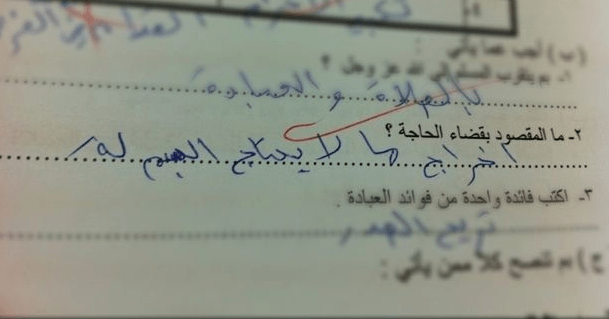 (ب) أجب عما يأتي :
١- بم يتقرب المسلم إلى الله عز وجل ؟
بالصلاة والعبادة
٢- ما المقصود بقضاء الحاجة ؟
اخراج ما لا يحتاج الجسم له
٣- اكتب فائدة واحدة من فوائد العبادة .
تريح الصدر
ج) بم تنصح كلاً ممن يأتي :